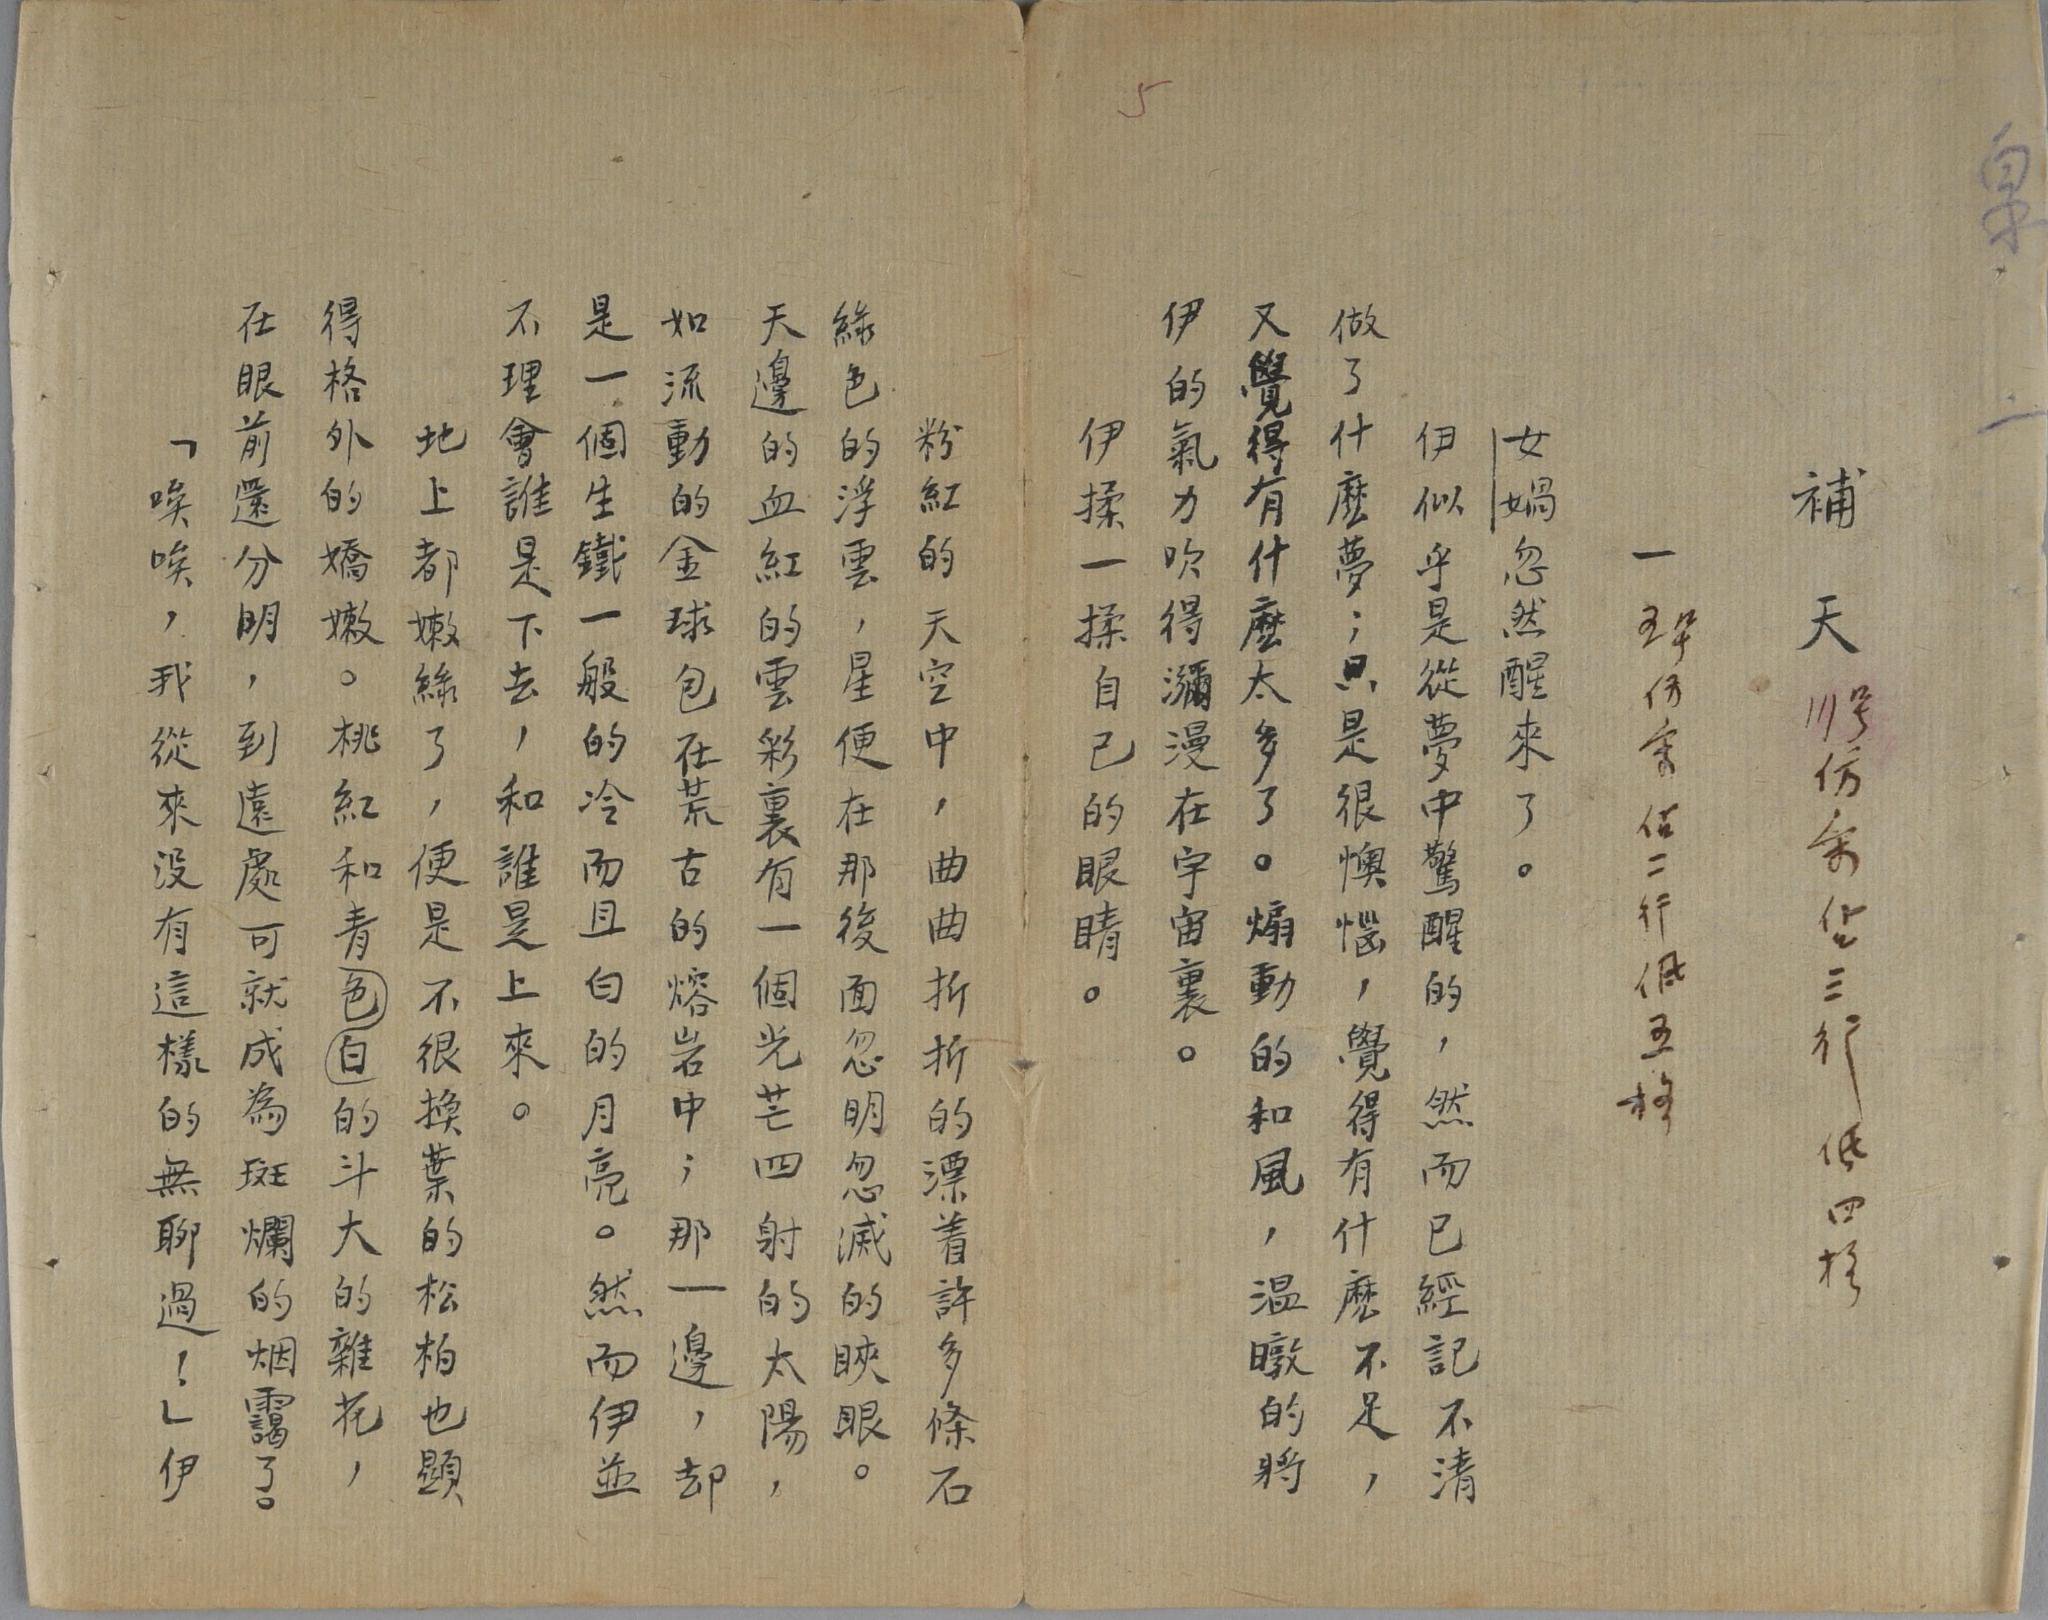 5
補天 川号仿宋佔三行低四格
一 五号仿宋佔二行低五格
女媧忽然醒來了。
伊似乎是從夢中驚醒的，然而已經記不清
做了什麽夢；只是很懊惱，覺得有什麽不足，
又覺得有什麽太多了。煽動的和風，温暾的將
伊的氣力吹得瀰漫在宇宙裏。
伊揉一揉自己的眼睛。
粉紅的天空中，曲曲折折的漂着許多條石
綠色的浮雲，星便在那後面忽明忽滅的䀹眼。
天邊的血紅的雲彩裏有一個光芒四射的太陽，
如流動的金球包在荒古的熔岩中；那一邊，却
是一個生鐵一般的冷而且白的月亮。然而伊並
不理會誰是下去，和誰是上來。
地上都嫩綠了，便是不很換葉的松柏也顯
得格外的嬌嫩。桃紅和青色白的斗大的雜花，
在眼前還分明，到遠處可就成為斑斕的烟靄了。
「唉唉，我從來没有這樣的無聊過！」伊